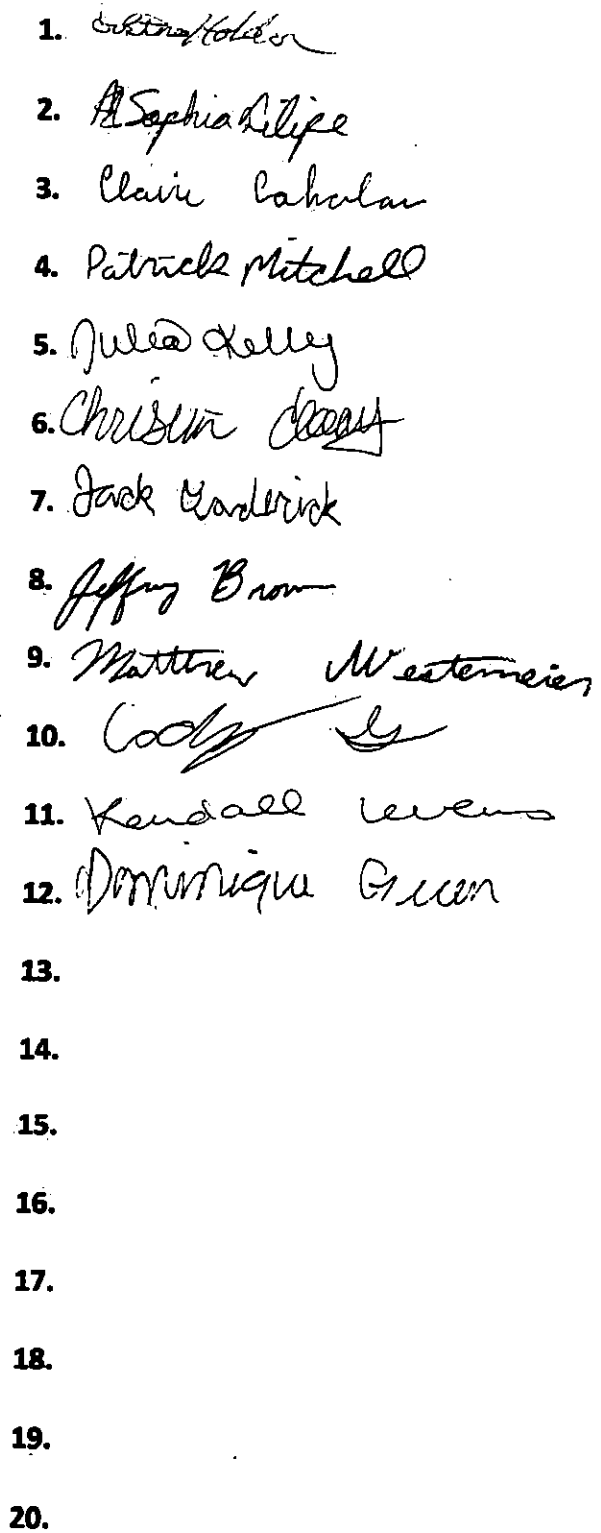 1. Holden
2. Sophia Filipe
3. Claire Cahalan
4. Patrick Mitchell
5. Julia Kelly
6.
7. Jack
8. Jeffrey Brown
9. Matthew Westemeier
10. Cody
11. Kendall
12. Dominique Green
13.
14.
15.
16.
17.
18.
19.
20.